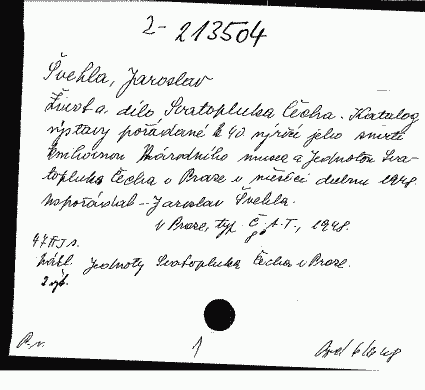 2-213504
Švehla, Jaroslav
Život a dílo Svatopluka Čecha. Katalog
výstavy pořádané k 40 výročí jeho smrti
knihovnou Národního musea a Jednotou Sva-
topluka Čecha v Praze v měsíci dubnu 1948.
Uspořádal - Jaroslav Švehla.
V Praze, typ. Č.A.T., 1948.
47 s.
Nákl. Jednoty Svatopluka Čecha v Praze.
2 výt.
P.v. 1